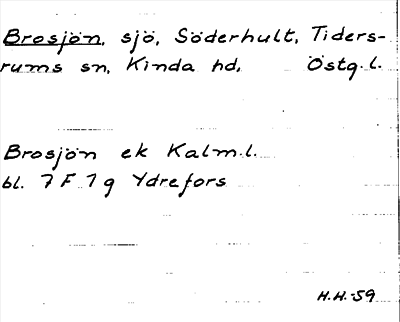 Brosjön, sjö, Söderhult, Tiders-
rums sn, Kinda hd, Östg.l.
Brosjön ek Kalm.l.
bl. 7 F 7 g Ydrefors
H.H.-59